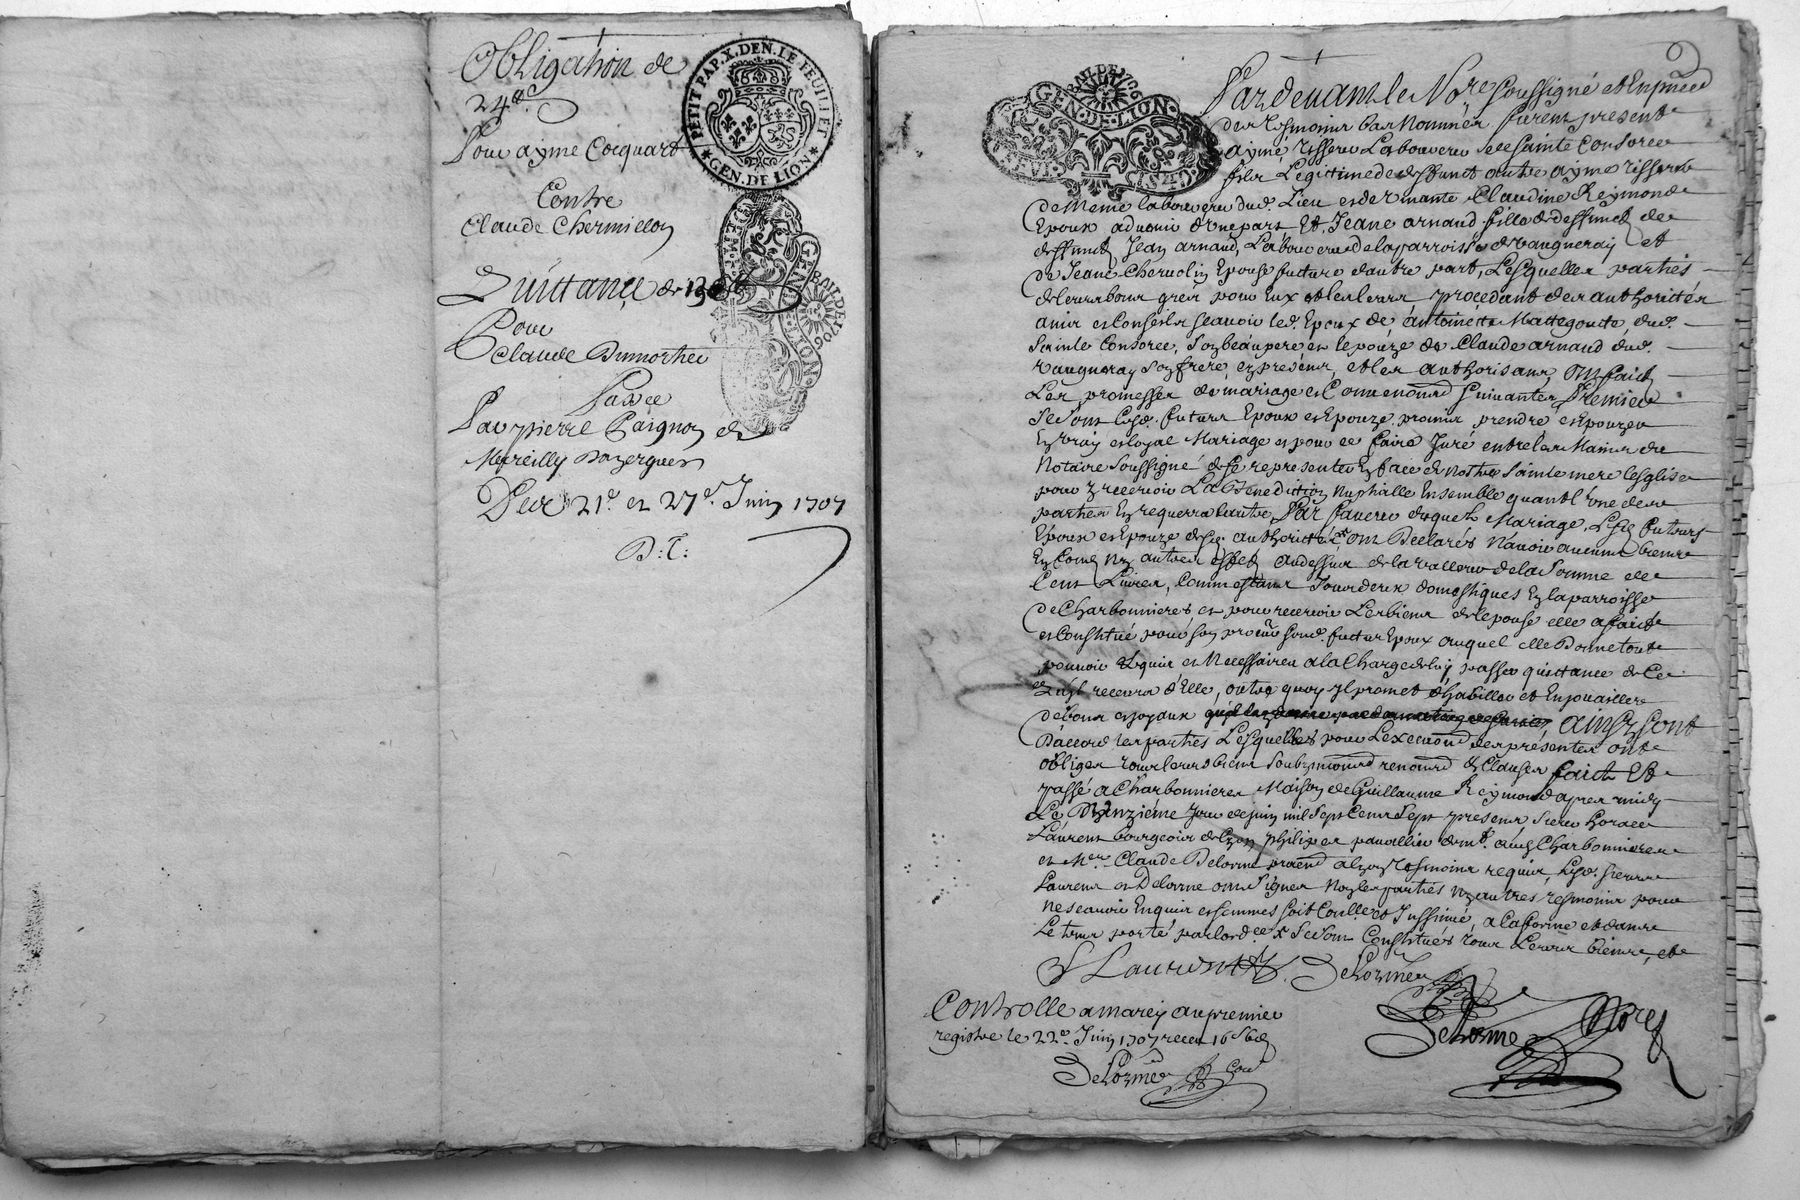 Obligation de
24#
Pour ayme Cocquart
Contre
Claude Chermillon
Quittance de
Pour
Claude Dumortier
Passée
Par pierre Paignon de
Mareilly Dazergues
Des 21e et 27e Juin 1707
D:C:
PETIT PAP. X. DEN. LE FEUILLET
GEN. DE LION
GEN. DE LION
BAIL DE 1706
BAIL DE 1706
GEN. DE LION
Pardevant le Nore soussigné et En pñce
des tesmoins bas Nommés furent present
aymé tisseru Laboureur de Sainte Consorce
fils Legitime de deffunct autre ayme tisseru
de Meme laboureur dud. Lieu et de vivante Claudine Reymond
Epoux advenir d'une part Et Jeane arnaud fille de deffunct de
deffunct Jean arnaud, Laboureur de la parroisse de vaugneray et
De Jeane Chervolin Epouse future dautre part, Lesquelles parties
de leurs bons gres pour Eux et les leurs procedant des authorités
avis et Conseils scavoir led. Epoux de antoine Mattegoutte dud.
Sainte Consorce, son beaupere, et lepouze de Claude arnaud dud.
vaugneray son frere, cy presens, et les authorisans, Ont faict
Les promesses de mariage et Convenõns suivantes, Premier
Se sont lesd. futurs Epoux et Epouze promis prendre et Epouzer
En vray et loyal Mariage et pour ce faire Juré entre les Mains du
Notaire soussigné de se representer En face de nostre sainte mere leglise
pour y recevoir La Benediction Nuptialle Ensemble quand l'une des
parties En requerra lautre, Par faveur duquel Mariage, Lesd. futurs
Epoux et Epouze de lad. authorité ont Declarés N'avoir aucuns biens
En Cont. Ny autres effets audessus de la valleur de la somme de
Cent Livres, Comme estans tous deux domestiques En la parroisse
de Charbonnieres et pour recevoir Les biens de lepouse elle a faict
et Constitué pour son procur̃ sond. futur Epoux auquel elle Donne tout
pouvoir Requis et Necessaires a la Charge de luy passer quittance de Ce
quil recevra d'Elle, outre quoy Il promet d'habiller et Enjouailler
de bons et joyaux ainsy sont
D'accord les parties Lesquelles pour Lexecuõn des presentes ont
obligés tous leurs biens soubzmiõns renonõns et Clauses faict Et
passé a Charbonnieres Maison de Guillaume Reymond apres midy
Le Quinzième Jour de juin mil sept Cens sept presens sieur horace
Laurent bourgeois de Lyon philipes pavallier demt. aud. Charbonnieres
et Mre Claude Delorme a Lyon tesmoins requis, Lesd. sieurs
Laurens et Delorme ont signés Non les parties Ny autres tesmoins pour
ne scavoir Enquis et sommés soit Conllé et Jnssinué, a la forme et dans
Le tems porté par lord.ce x Se sont Constitués tous Leurs biens, et
Laurent Delorme
Delorme Nore
Controllé a marcy au premier
registre le 22e Juin 1707 receu 16 s 6 d
Delorme